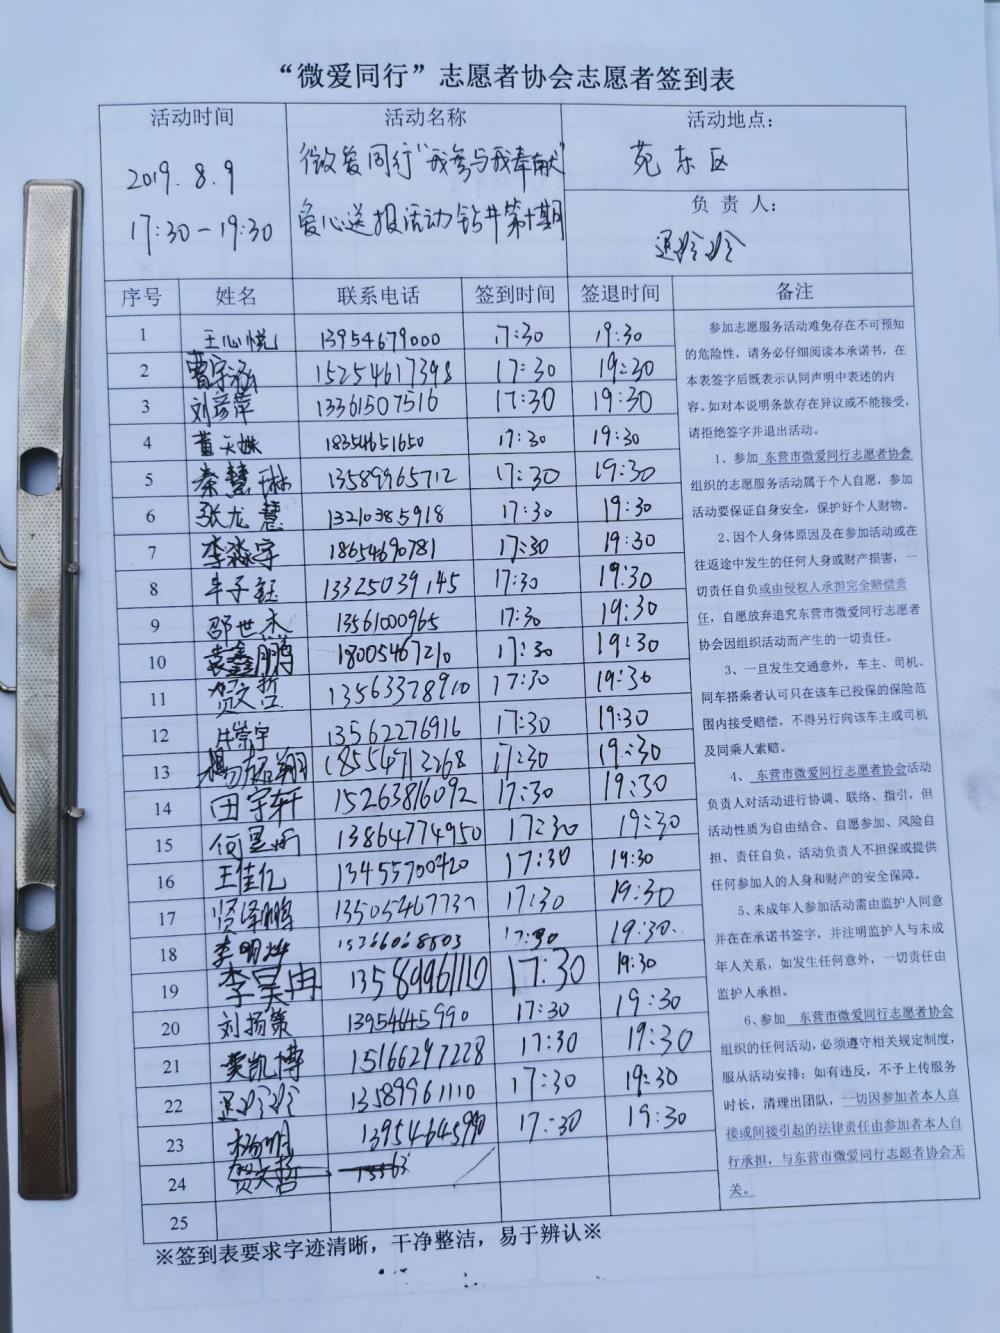 “微爱同行”志愿者协会志愿者签到表
活动时间
活动名称
活动地点：
2019.8.9
17:30-19:30
微爱同行"我参与我奉献"
爱心送报活动钻井第十期
苑东区
负责人：
序号 姓名 联系电话 签到时间 签退时间 备注
1 王心悦 13954679000 17:30 19:30
2 15254617398 17:30 19:30
3 刘彦萍 13361507516 17:30 19:30
4 董天姝 18354651650 17:30 19:30
5 秦慧琳 13589965712 17:30 19:30
6 张龙慧 13210385918 17:30 19:30
7 李淼宇 18654690781 17:30 19:30
8 子钰 13325039145 17:30 19:30
9 邵世杰 13561000965 17:30 19:30
10 袁鑫鹏 18005467210 17:30 19:30
11 贺文哲 13563378910 17:30 19:30
12 崇宇 13562276916 17:30 19:30
13 18554712268 17:30 19:30
14 田宇轩 15263816092 17:30 19:30
15 何昱雨 13864774950 17:30 19:30
16 王佳亿 13455700420 17:30 19:30
17 贤泽鹏 13505467737 17:30 19:30
18 李明烨 15266068803 17:30 19:30
19 李昊冉 13589961110 17:30 19:30
20 刘扬策 13954645990 17:30 19:30
21 凯博 15166297228 17:30 19:30
22 13589961110 17:30 19:30
23 杨明 13954645990 17:30 19:30
24 贺文哲
25
参加志愿服务活动难免存在不可预知
的危险性，请务必仔细阅读本承诺书，在
本表签字后既表示认同声明中表述的内
容。如对本说明条款存在异议或不能接受，
请拒绝签字并退出活动。
1、参加 东营市微爱同行志愿者协会
组织的志愿服务活动属于个人自愿，参加
活动要保证自身安全，保护好个人财物。
2、因个人身体原因及在参加活动或在
往返途中发生的任何人身或财产损害，一
切责任自负或由侵权人承担完全赔偿责
任，自愿放弃追究东营市微爱同行志愿者
协会因组织活动而产生的一切责任。
3、一旦发生交通意外，车主、司机、
同车搭乘者认可只在该车已投保的保险范
围内接受赔偿，不得另行向该车主或司机
及同乘人索赔。
4、东营市微爱同行志愿者协会活动
负责人对活动进行协调、联络、指引，但
活动性质为自由结合、自愿参加、风险自
担、责任自负。活动负责人不担保或提供
任何参加人的人身和财产的安全保障。
5、未成年人参加活动需由监护人同意
并在在承诺书签字，并注明监护人与未成
年人关系，如发生任何意外，一切责任由
监护人承担。
6、参加 东营市微爱同行志愿者协会
组织的任何活动，必须遵守相关规定制度，
服从活动安排；如有违反，不予上传服务
时长，清理出团队，一切因参加者本人直
接或间接引起的法律责任由参加者本人自
行承担，与东营市微爱同行志愿者协会无
关。
※签到表要求字迹清晰，干净整洁，易于辨认※